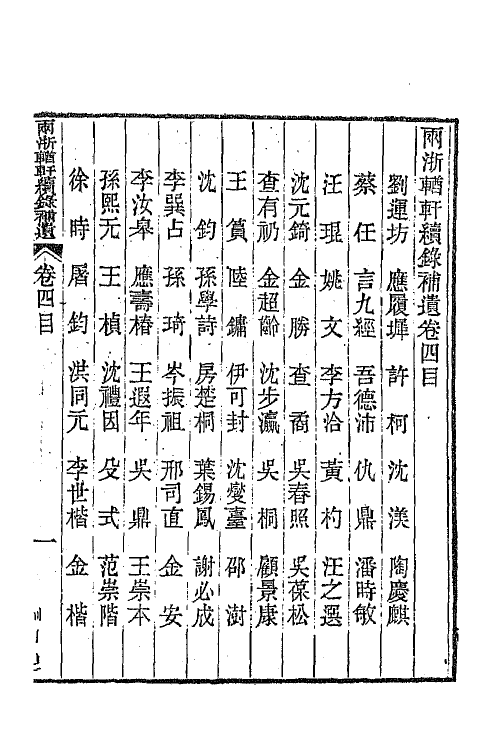 兩浙輶軒續錄補遺卷四目
劉運坊 應履墀 許柯 沈渼 陶慶麒
蔡任 言九經 吾德沛 仇鼎 潘時敏
汪琨 姚文 李方洽 黃杓 汪之選
沈元錡 金勝 查喬 吳春照 吳葆松
查有礽 金超齡 沈步瀛 吳桐 顧景康
王篔 陸鏞 伊可封 沈燮臺 邵澍
沈鈞 孫學詩 房楚桐 葉錫鳳 謝必成
李巽占 孫琦 岑振祖 邢司直 金安
李汝皋 應壽椿 王遐年 吳鼎 王崇本
孫熙元 王楨 沈禮因 殳式 范崇階
徐時 屠鈞 洪同元 李世楷 金楷
兩浙輶軒續錄補遺 卷四目 一